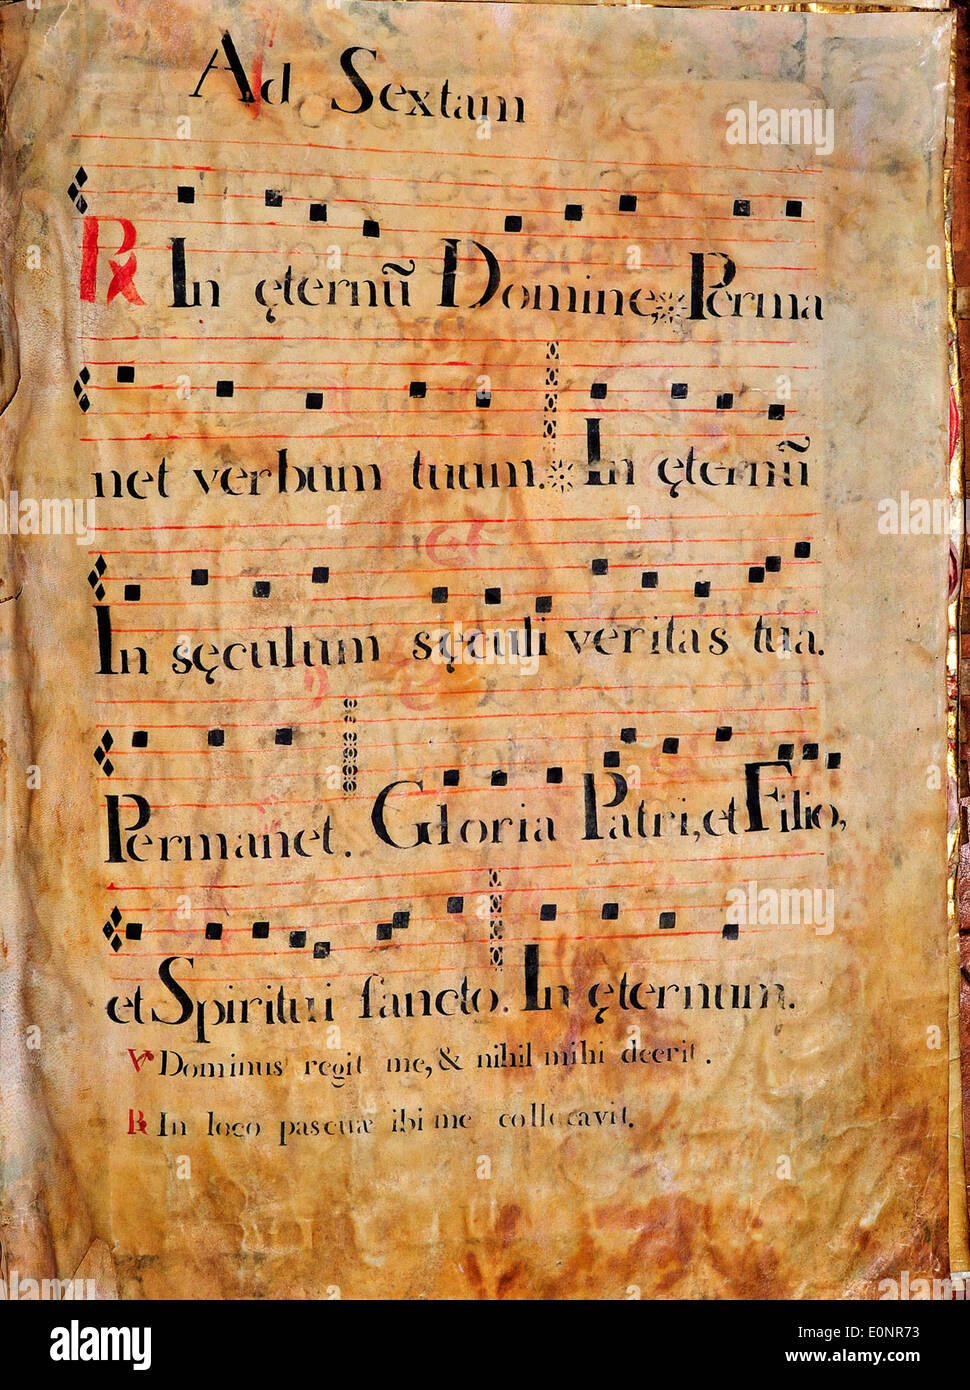 Ad Sextam
℟ In ęternũ Domine, Perma
net verbum tuum. In ęternũ
In sęculum sęculi veritas tua.
Permanet. Gloria Patri, et Filio,
et Spiritui sancto. In ęternum.
℣ Dominus regit me, & nihil mihi deerit.
℟ In loco pascuæ ibi me collocavit.
alamy
Image ID: E0NR73
www.alamy.com